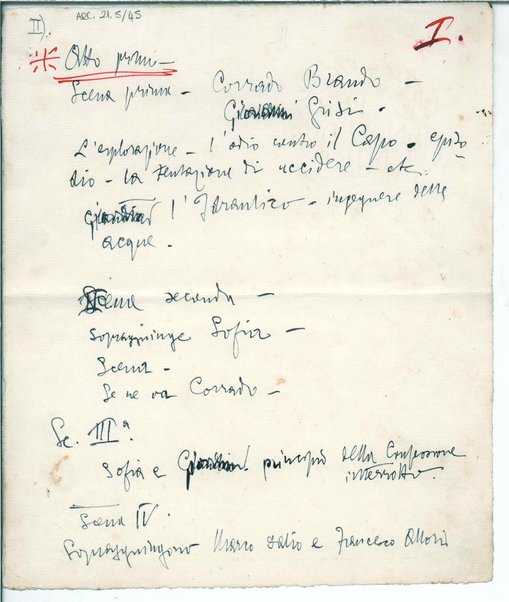 II)
ARC. 21.5/45
I.
Atto primo —
Scena prima — Corrado Brando —
Giovanni Grisi —
L'esplorazione — l'odio contro il Capo — episo
dio — la tentazione di uccidere — etc.
l'Farantico — ingegnere delle
acque —
Scena seconda —
Sopraggiunge Sofia —
Scena —
Se ne va Corrado —
Sc. IIIª.
Sofia e principio della Confessione
interrotto.
Scena IV.
Sopraggiungono Marco Dalio e Francesco